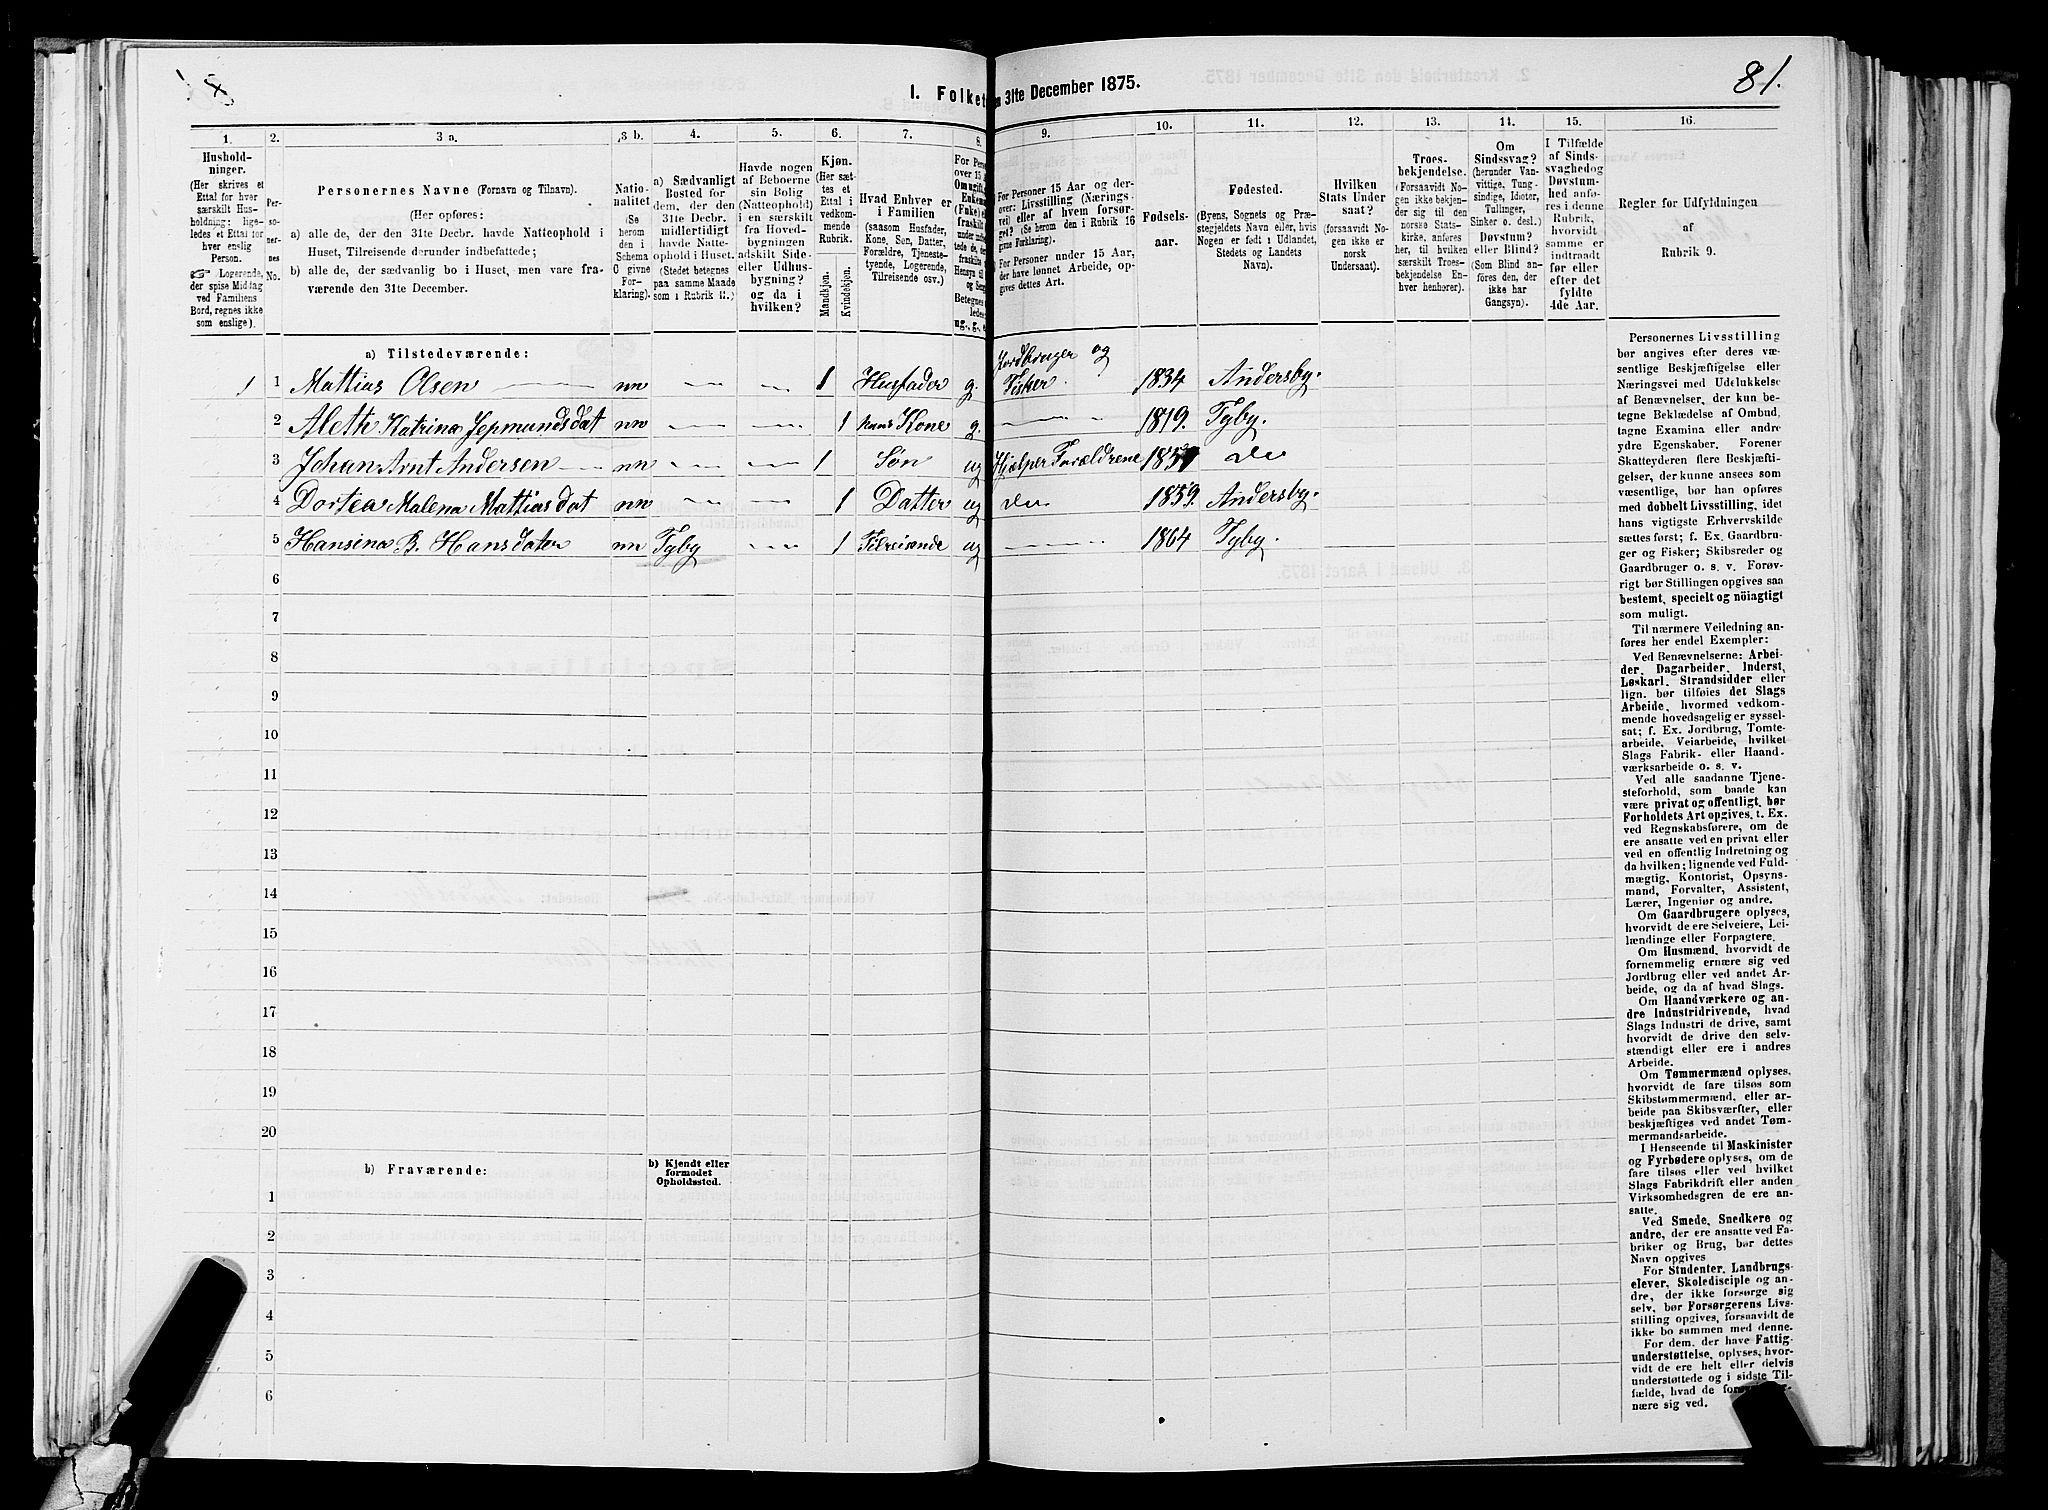 x
81.
I. Folket
en 31te December 1875.
1. 2. 3 a. 3 b. 4. 5. 6. 7. 8. 9. 10. 11. 12. 13. 14. 15. 16.
Hushold-
ninger.
(Her skrives et
Ettal for hver
særskilt Hus-
holdning; lige-
ledes et Ettal for
hver enslig
Person.
☞ Logerende,
der spise Middag
ved Familiens
Bord, regnes ikke
som enslige).
Per-
so-
ner-
nes
No.
Personernes Navne (Fornavn og Tilnavn).
(Her opføres:
a) alle de, der den 31te Decbr. havde Natteophold i
Huset, Tilreisende derunder indbefattede;
b) alle de, der sædvanlig bo i Huset, men vare fra-
værende den 31te December.
Natio-
nalitet
(Se
herom
den i
Schema
C givne
For-
klaring).
a) Sædvanligt
Bosted for
dem, der den
31te Decbr.
midlertidigt
havde Natte-
ophold i Huset.
(Stedet betegnes
paa samme Maade
som i Rubrik 11.)
Havde nogen
af Beboerne
sin Bolig
(Natteophold)
i en særskilt
fra Hoved-
bygningen
adskilt Side-
eller Udhus-
bygning?
og da i
hvilken?
Kjøn.
(Her sæt-
tes et
Ettal i
vedkom-
mende
Rubrik.
Mandkjøn.
Kvindekjøn.
Hvad Enhver er
i Familien
(saasom Husfader,
Kone, Søn, Datter,
Forældre, Tjeneste-
tyende, Logerende,
Tilreisende osv.)
For Pers
over 15 A
Om ugift,
Enkem
(Enke) e
fraskilt
tede de,
fraskilte
Hensyn til
og Sen
Betegnes
ledes:
ug., g., e
For Personer 15 Aar og der-
over: Livsstilling (Nærings-
vei) eller af hvem forsør-
get? (Se herom den i Rubrik 16
givne Forklaring).
For Personer under 15 Aar, der
have lønnet Arbeide, op-
gives dettes Art.
Fødsels-
aar.
Fødested.
(Byens, Sognets og Præ-
stegjeldets Navn eller, hvis
Nogen er født i Udlandet,
Stedets og Landets
Navn).
Hvilken
Stats Under
saat?
(forsaavidt No-
gen ikke er
norsk
Undersaat).
Troes-
bekjendelse.
(Forsaavidt No-
gen ikke bekjen-
der sig til den
norske Stats-
kirke, anføres
her, til hvilken
særskilt Troes-
bekjendelse En-
hver henhører).
Om
Sindssvag?
(herunder Van-
vittige, Tung-
sindige, Idioter,
Tullinger,
Sinker o. desl.)
Døvstum?
eller Blind?
(Som Blind an-
føres den, der
ikke har
Gangsyn).
I Tilfælde
af Sinds-
svaghed og
Døvstum-
hed anfø-
res i denne
Rubrik,
hvorvidt
samme er
indtraadt
før eller
efter det
fyldte
4de Aar.
Regler for Udfyldningen
af
Rubrik 9.
a) Tilstedeværende:
1 1 Mattias Olsen nn 1 Husfader g. Jordbruger og Fisker. 1834 Andersby.
2 Aleth Katrina Jepmundsdat nn 1 hans Kone g. 1819. Tyby.
3 Johan Arnt Andersen nn 1 Søn ug Hjælper Forældrene do
4 Dortea Malena Mattiasdat nn 1 Datter ug do 1859. Andersby.
5 Hansena B. Hansdater nn Tyby 1 Tilreisende ug 1864 Tyby.
6
7
8
9
10
11
12
13
14
15
16
17
18
19
20
b) Fraværende:
b) Kjendt eller
formodet
Opholdssted.
1
2
3
4
5
6
Personernes Livsstilling
bør angives efter deres væ-
sentlige Beskjæftigelse eller
Næringsvei med Udelukkelse
af Benævnelser, der kun be-
tegne Beklædelse af Ombud,
tagne Examina eller andre
ydre Egenskaber. Forener
Skatteyderen flere Beskjæfti-
gelser, der kunne ansees som
væsentlige, bør han opføres
med dobbelt Livsstilling, idet
hans vigtigste Erhvervskilde
sættes først; f. Ex. Gaardbru-
ger og Fisker; Skibsreder og
Gaardbruger o. s. v. Forøv-
rigt bør Stillingen opgives saa
bestemt, specielt og nöiagtigt
som muligt.
Til nærmere Veiledning an-
føres her endel Exempler:
Ved Benævnelserne: Arbei-
der, Dagarbeider, Inderst,
Løskarl, Strandsidder eller
lign. bør tilføies det Slags
Arbeide, hvormed vedkom-
mende hovedsagelig er syssel-
sat; f. Ex. Jordbrug, Tomte-
arbeide, Veiarbeide, hvilket
Slags Fabrik- eller Haand-
værksarbeide o. s. v.
Ved alle saadanne Tjene-
steforhold, som baade kan
være privat og offentligt, bør
Forholdets Art opgives, t. Ex.
ved Regnskabsførere, om de
ere ansatte ved en privat eller
ved en offentlig Indretning og
da hvilken; lignende ved Fuld-
mægtig, Kontorist, Opsyns-
mand, Forvalter, Assistent,
Lærer, Ingeniør og andre.
Om Gaardbrugere oplyses,
hvorvidt de ere Selveiere, Lei-
lændinge eller Forpagtere.
Om Husmænd, hvorvidt de
fornemmelig ernære sig ved
Jordbrug eller ved andet Ar-
beide, og da af hvad Slags.
Om Haandværkere og an-
dre Industridrivende, hvad
Slags Industri de drive, samt
hvorvidt de drive den selv-
stændigt eller ere i andres
Arbeide.
Om Tømmermænd oplyses,
hvorvidt de fare tilsøs som
Skibstømmermænd, eller ar-
beide paa Skibsværfter, eller
beskjæftiges ved andet Tøm-
mermandsarbeide.
I Henseende til Maskinister
og Fyrbødere oplyses, om de
fare tilsøs eller ved hvilket
Slags Fabrikdrift eller anden
Virksomhedsgren de ere an-
satte.
Ved Smede, Snedkere og
andre, der ere ansatte ved Fa-
briker og Brug, bør dettes
Navn opgives
For Studenter, Landbrugs-
elever, Skoledisciple og an-
dre, der ikke forsørge sig
selv, bør Forsørgerens Livs-
stilling opgives, forsaavidt de
ikke bo sammen med denne.
For dem, der have Fattig-
understøttelse, oplyses, hvor-
vidt de ere helt eller delvis
understøttede og i sidste Til-
fælde, hvad de
nære sig ved.